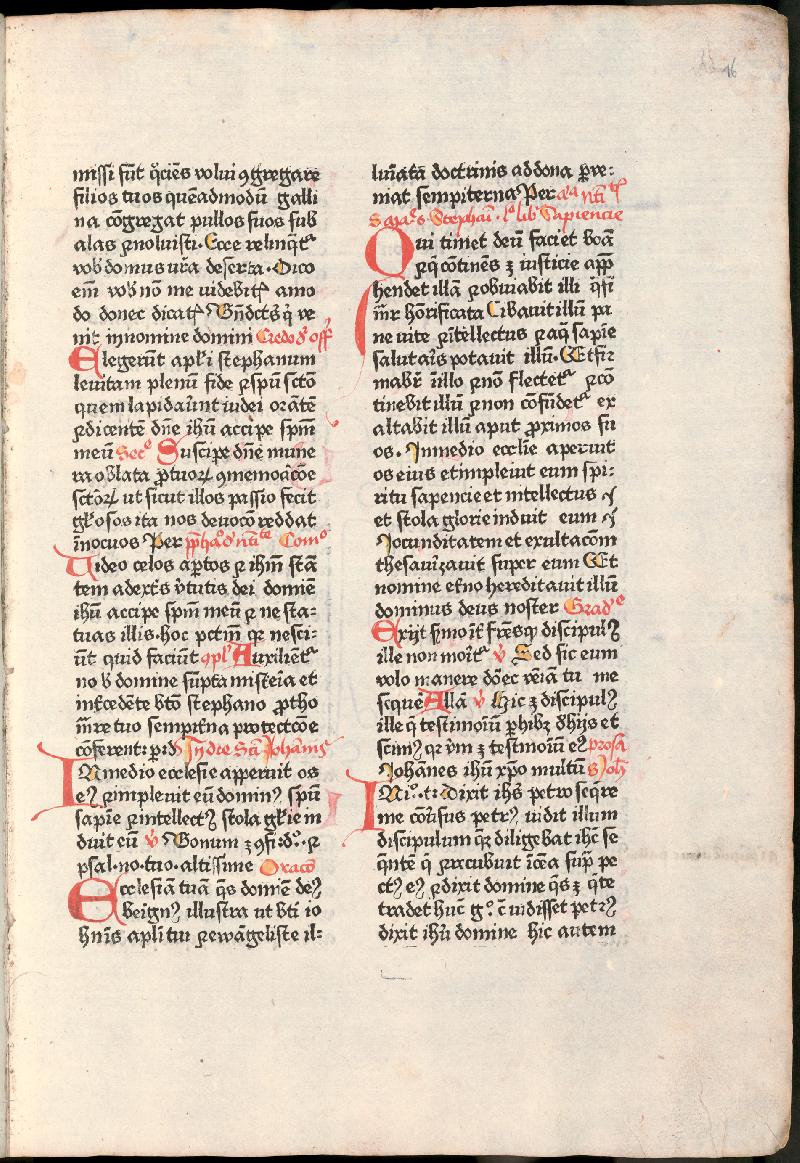 16
missi sūt q̊ciēs volui ꝯgregare
filios tuos quēadmodū galli
na cōgregat pullos suos sub
alas ⁊ noluisti. Ecce relinq̄tᵣ
vob̵ domus ur̄a deserta. Dico
em̄ vob̵ nō me videbitꝭ amo
do donec dicatꝭ Bn̄dctꝰ q̇ ve
nit in nomine domini Credo d̕ off
Elegerūt apl̄i stephanum
levitam plenū fide ⁊ spū sctō
quem lapidaūnt iudei orātē
⁊ dicentē dn̄e ihū accipe spm̄
meū Secᵉ Suscipe dn̄e mune
ra oblata ꝓ tuoꝝ ꝯmemoac̄oe
sctōꝝ ut sicut illos passio fecit
gl̄osos ita nos devoc̄o reddat
īnocuos Per Como
Video celos aꝑtos ⁊ ihm̄ stā
tem a dextꝭ v̕tutis dei domiē
ihū accipe spm̄ meū ⁊ ne sta⸗
tuas illis hoc pctm̄ qꝛ nesci⸗
ūt quid faciūt ꝯpl̄ Auxiliet᷑
nob̵ domine sūpta misteia et
int̕cedēte bt̄o stephano ꝓtho
mr̄e tuo sempit̕na protectc̄oe
cōferent. ꝑ d In die Sct̄i Johānis
IN medio ecclesie apperuit os
eiꝰ ⁊ impleuit eū dominꝰ spū
sapiē ⁊ intellectꝰ stola gl̄ie in
duit eū v̕ Bonum ⁊ ꝯfi. dō. ⁊
psal. no. tuo. altissime Oracō
Ecclesiā tuā q̄s domiē
beignꝰ illustra ut bt̄i io
hn̄is apl̄i tui ⁊ ewāgeliste il⸗
luīata doctrinis ad dona ꝑve⸗
niat sempiterna Per
Stephani lib̵ Sapiencie
Qui timet deū faciet boā
⁊ q̇ cōtinēs ē iusticie app̄
hendet illā ⁊ obviabit illi q̄si
mr̄ hōrificata Cibauit illū pa
ne vite ⁊ ītellectus ⁊ aq̄ sapiē
salutaīs potauit illū. Et fir
mabit᷑ ī illo ⁊ nō flectet᷑ ⁊ cō
tinebit illū ⁊ non cōfūdet᷑ ⁊ ex
altabit illū aput ꝓximos su
os. In medio eccl̄ie aperuit
os eius et impleuit eum spi⸗
ritu sapencie et intellectus ⁊
et stola glorie induit eum ⁊
Jocunditatem et exultacōm
thesaurizauit super eum Et
nomine et̕no hereditauit illū
dominus deus noster Gradᵉ
Exijt smo īt̕ fr̄es qꝫ discipulꝰ
ille non morit᷑ v̕ Sed sic eum
volo manere dōec veīa tu me
sequē Allā v̕ Hic ē discipulꝰ
ille q̇ testimōiū ꝑhibꝫ d̕ hijs et
scimꝰ qꝛ vm̄ ē testmōiū eiꝰ prosa
Johānes ihū xp̄o multū S Joh̄
IN i. t. Dixit ihs̄ petro seqr̄e
me cōūsus petrꝰ vidit illum
discipulum quē diligebat ihc̄ se
qn̄tē q̇ ⁊ recubuit ī cēa sup̄ pe
ctꝰ eiꝰ ⁊ dixit domine q̇s ē q̇ te
tradet hūc g̊. c̄ vidisset petrꝰ
dixit ihū domine hic autem